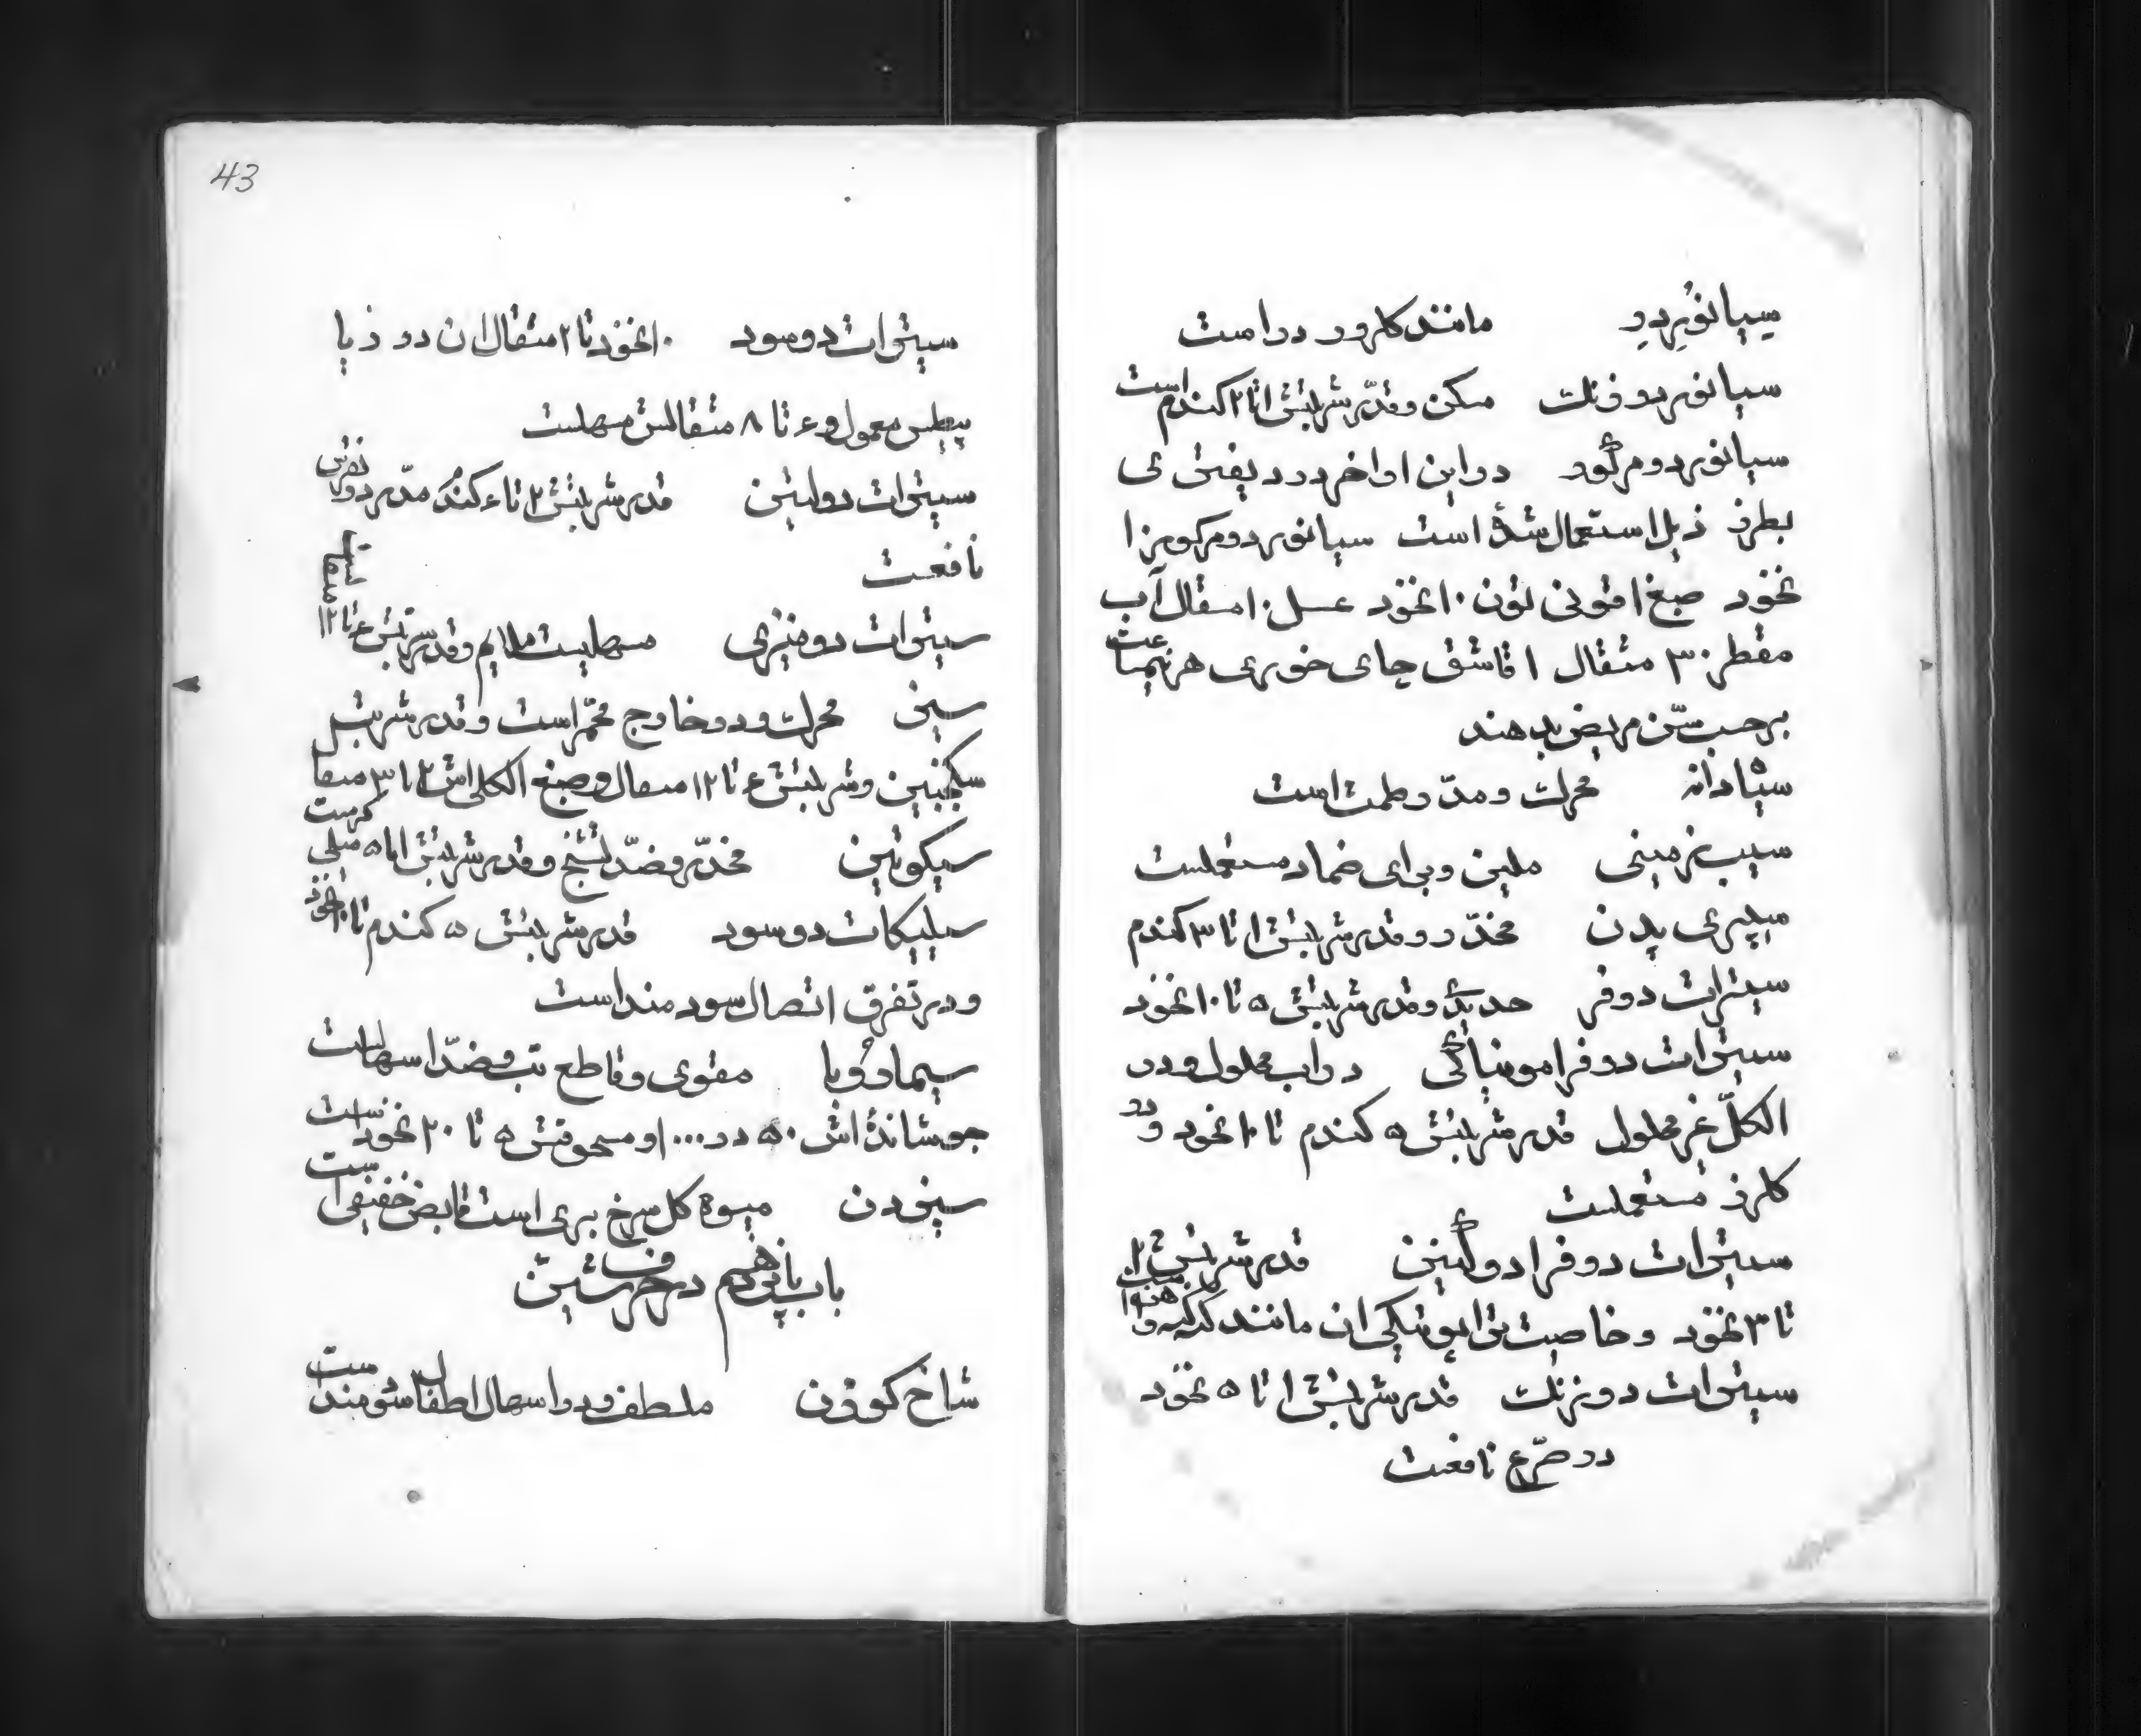 سیانوُردِ دو مانند کلرور دو است
سیانور دو زنك مسکن و قدر شربتش ۱ تا ۲ کندم است
سیانور دو مرکور در این اواخر در دیفتری
بطرز ذیل استعمال شدهٔ است سیانور دو مرکور نرا
نخود صبغ اقونی تون ۱۰ نخود عسل ۱۰ مثقال آب
مقطر ۳۰ مثقال ۱ قاشق چای خوری هر نیمساعت
برحسب سّن مریض بدهند
سیاه دانه محرك و مدّر طمث است
سیب زمینی ملین و برای ضماد مستعملست
سیپری پدن مخدّر و قدر شربتش ۱ تا ۳ کندم
سیترات دوفر حدیدیٔ و قدر شربتش ۵ تا ۱۰ نخود
سیترات دوفر امونیاکی در آب محلول و در
الکلّ غیر محلول قدر شربتش ۵ کندم تا ۱۰ نخود و در
کلرز مستعملست
سیترات دوفر ادو کنین قدر شربتش ۲
تا ۳ نخود و خاصیت تراپوتیکی ان مانند
سیترات دو زنك قدر شربتش ۱ تا ۵ نخود
در صرع نافعست
43
سیترات دو سود ۱۰ نخود تا ۲ مثقال ان در ذیا
بیطس معمول و ۴ تا ۸ مثقالش مسهلست
سیترات دولیتن قدر شربتش ۲ تا ۴ کندم مدّر در نقرس
نافعست
سیترات دو منیزی مسهلیست ملایم و قدر شربتش ۴ تا ۱۲ مثقال
سیر محرك و در خارج محمّر است و قدر شربتش
سکنجبین و شربتش ۴ تا ۱۲ مثقال و صبغ الکلی اش ۲ تا ۳ مثقا
سیکوتین مخدّر و ضدّ تشنج و قدر شربتش ۱ تا ۵ میلی کرمست
سیلیکات دو سود قدر شربتش ۵ کندم تا ۱۰ نخود
و در تفرق اتصال سودمند است
سیماروبا مقوی و قاطع تب و ضدّ اسهالست
جوشاندهٔ اش ۵۰ در ۱۰۰۰ و مسحوقش ۵ تا ۲۰ نخود است
سینردن میوه کل سرخ بری است قابض خفیفی است
باب پانزدهم در حرف شین
شاخ کوزن ملطف و در اسهال اطفال سودمند است